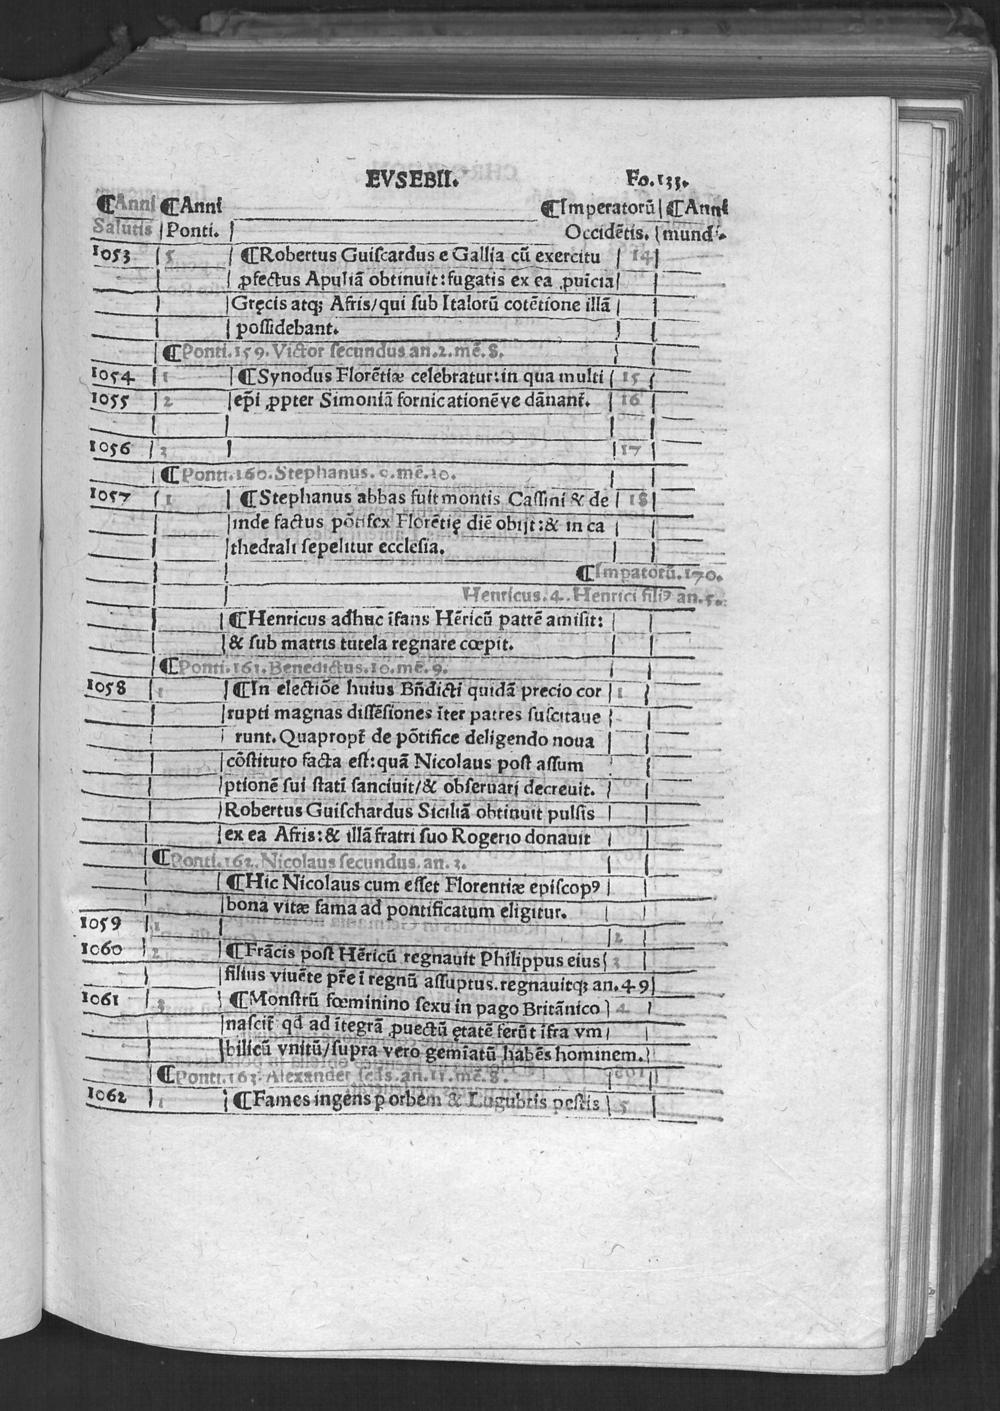 EVSEBII. Fo.133.
¶Anni ¶Anni ¶Imperatorū ¶Anni
Salutis Ponti. Occidētis. mundi.
1053 5 ¶Robertus Guiscardus e Gallia cū exercitu 14
ꝓfectus Apuliā obtinuit: fugatis ex ea ꝓuicia
Gręcis atqꝫ Afris/qui sub Italorū cotētione illā
possidebant.
¶Ponti.159.Victor secundus.an.2.mē.8.
1054 1 ¶Synodus Florētiæ celebratur: in qua multi 15
1055 2 ep̄i ꝓpter Simoniā fornicationēve dānant̄. 16
1056 3 17
¶Ponti.160.Stephanus.9.mē.10.
1057 1 ¶Stephanus abbas fuit montis Cassini & de 18
inde factus pōtifex Florētię diē obijt: & in ca
thedrali sepelitur ecclesia.
¶Impatorū.170.
Henricus.4.Henrici filiꝰ an.5.
¶Henricus adhuc īfans Hēricū patrē amisit:
& sub matris tutela regnare cœpit.
¶Ponti.161.Benedictus.10.mē.9.
1058 1 ¶In electiōe huius Bn̄dicti quidā precio cor 1
rupti magnas dissēsiones īter patres suscitaue
runt. Quapropt̄ de pōtifice deligendo noua
cōstituto facta est: quā Nicolaus post assum
ptionē sui statī sanciuit/& obseruari decreuit.
Robertus Guischardus Siciliā obtinuit pulsis
ex ea Afris: & illā fratri suo Rogerio donauit
¶Ponti.162.Nicolaus secundus.an.3.
¶Hic Nicolaus cum esset Florentiæ episcopꝰ
bona vitæ fama ad pontificatum eligitur.
1059 1 2
1060 2 ¶Frācis post Hēricū regnauit Philippus eius 3
filius viuēte pr̄e ī regnū assuptus. regnauitqꝫ an.49
1061 3 ¶Monstrū fœminino sexu in pago Britānico 4
nascit̄ qd̄ ad ītegrā ꝓuectū ętatē ferūt īfra vm
bilicū vnitū/supra vero gemīatū habēs hominem.
¶Ponti.163.Alexander scd̄s.an.11.mē.8.
1062 1 ¶Fames ingens ꝑ orbem & Lugubris pestis 5